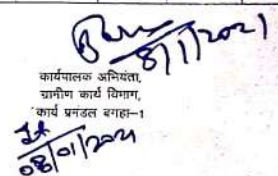 8/1/2021
कार्यपालक अभियंता,
ग्रामीण कार्य विभाग,
कार्य प्रमंडल बगहा-1
08/01/2021